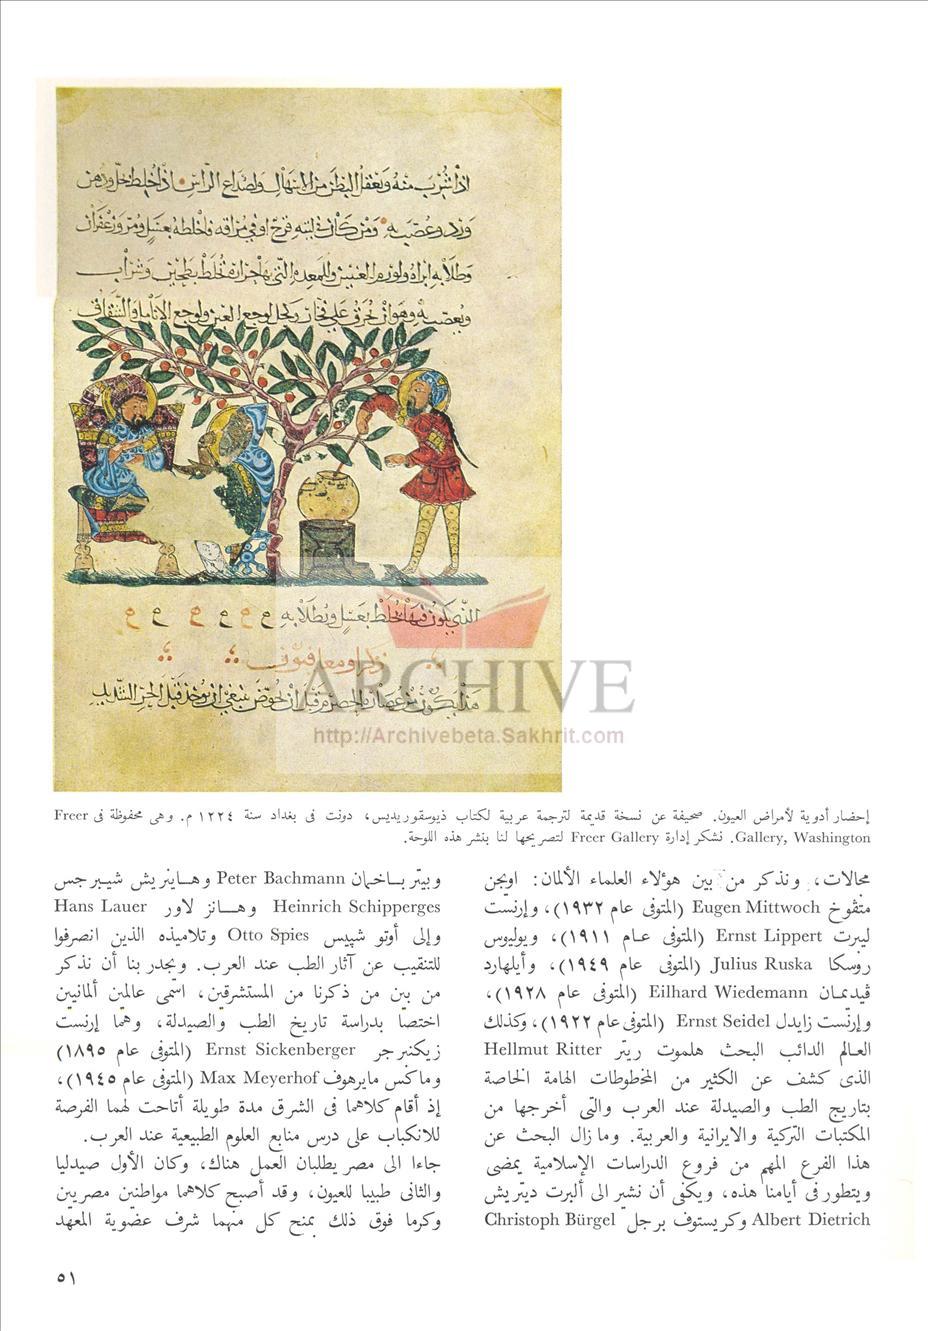 اذا شرب منه وتعقل البطن من الاسهال ولصداع الراس اذا خلط بخل ودهن
ورد وعصب به ومن كان في لثته قرح او في مراقه فاخلطه بعسل ومر وزعفران
وطلا به ابراه ولورم العينين وللمعدة التي بها حرارة تخلط بطحين وشراب
ويعصب به وهو ان نحرق على نحاس لوجع العين ولوجع الانامل والشقاق
التي يكون فيها تخلط بعسل ويطلا به
هذا يكون من عصارة الحصرم قبل ان يحمض ينبغي ان يوخذ قبل الحر الشديد
ARCHIVE
http://Archivebeta.Sakhrit.com
إحضار أدوية لأمراض العيون. صحيفة عن نسخة قديمة لترجمة عربية لكتاب ذيوسقوريديس، دونت فى بغداد سنة ١٢٢٤ م. وهى محفوظة فى Freer
Gallery, Washington. نشكر إدارة Freer Gallery لتصريحها لنا بنشر هذه اللوحة.
مجالات، ونذكر من بين هؤلاء العلماء الألمان: اويجن
متڤوخ Eugen Mittwoch (المتوفى عام ١٩٣٢)، وإرنست
ليبرت Ernst Lippert (المتوفى عام ١٩١١)، ويوليوس
روسكا Julius Ruska (المتوفى عام ١٩٤٩)، وأيلهارد
ڤيدمان Eilhard Wiedemann (المتوفى عام ١٩٢٨)،
وإرنست زايدل Ernst Seidel (المتوفى عام ١٩٢٢)، وكذلك
العالم الدائب البحث هلموت ريتر Hellmut Ritter
الذى كشف عن الكثير من المخطوطات الهامة الخاصة
بتاريخ الطب والصيدلة عند العرب والتى أخرجها من
المكتبات التركية والايرانية والعربية. وما زال البحث عن
هذا الفرع المهم من فروع الدراسات الإسلامية يمضى
ويتطور فى أيامنا هذه، ويكفى أن نشير الى ألبرت ديتريش
Albert Dietrich وكريستوف برجل Christoph Bürgel
وبيتر باخمان Peter Bachmann وهاينريش شيبرجس
Heinrich Schipperges وهانز لاور Hans Lauer
وإلى أوتو شپيس Otto Spies وتلاميذه الذين انصرفوا
للتنقيب عن آثار الطب عند العرب. ويجدر بنا أن نذكر
من بين من ذكرنا من المستشرقين، اسمى عالمين ألمانيين
اختصا بدراسة تاريخ الطب والصيدلة، وهما إرنست
زيكنبرجر Ernst Sickenberger (المتوفى عام ١٨٩٥)
وماكس مايرهوف Max Meyerhof (المتوفى عام ١٩٤٥)،
إذ أقام كلاهما فى الشرق مدة طويلة أتاحت لهما الفرصة
للانكباب على درس منابع العلوم الطبيعية عند العرب.
جاءا الى مصر يطلبان العمل هناك، وكان الأول صيدليا
والثانى طبيبا للعيون، وقد أصبح كلاهما مواطنين مصريين
وكرما فوق ذلك بمنح كل منهما شرف عضوية المعهد
٥١